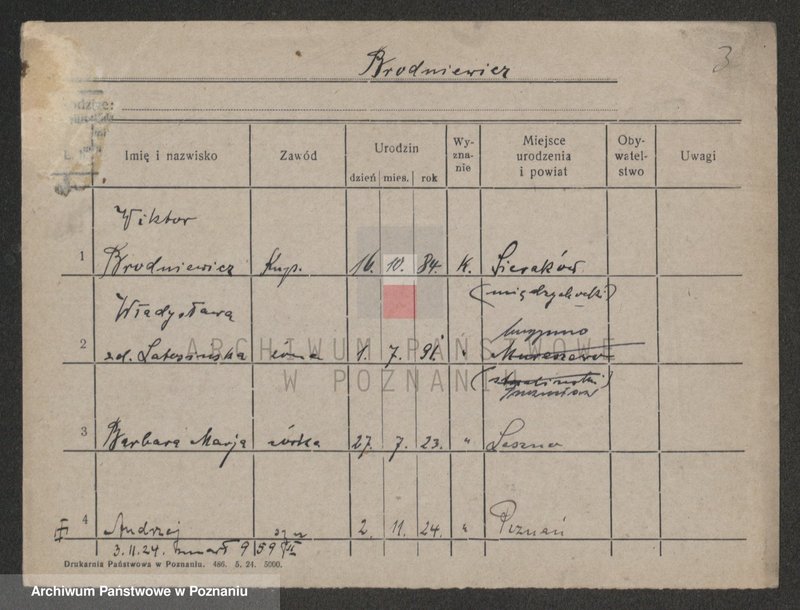 Brodniewicz
3
Imię i nazwisko
Zawód
Urodzin
dzień mies. rok
Wy-
zna-
nie
Miejsce
urodzenia
i powiat
Oby-
watel-
stwo
Uwagi
Wiktor
1 Brodniewicz Kup. 16. 10. 84. K. Sieraków
(międzychodzki)
Władysława
2 zd. żona 1. 7. 91. "
3 Barbara Marja córka 27. 7. 23. " Leszno
4 Andrzej syn 2. 11. 24. " Poznań
3.11.24. zmarł 9
Drukarnia Państwowa w Poznaniu. 486. 5. 24. 5000.
ARCHIWUM PAŃSTWOWE
W POZNANIU
Archiwum Państwowe w Poznaniu